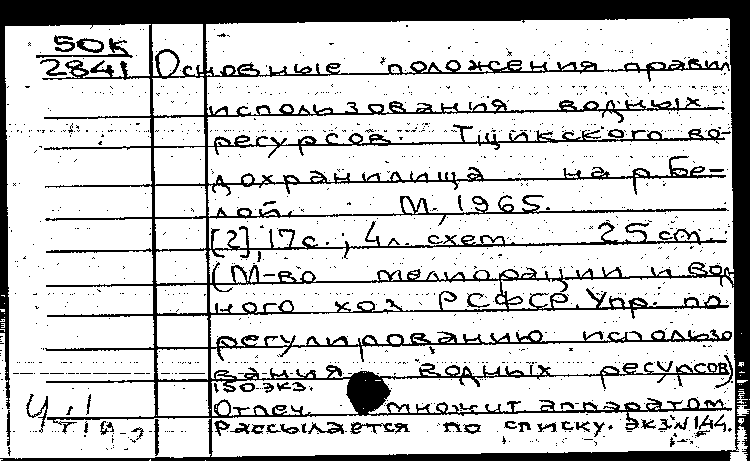 50К
2841
Основные положения правил
использования водных
ресурсов Тщикского во-
дохранилища на р. Бе=
лой. М., 1965.
[2], 17 с.; 4 л. схем. 25 см.
(М-во мелиорации и вод
ного хоз. РСФСР. Упр. по
регулированию использо
вания водных ресурсов)
150 экз.
Отпеч. множит. аппаратом
Рассылается по списку. Экз. № 144.